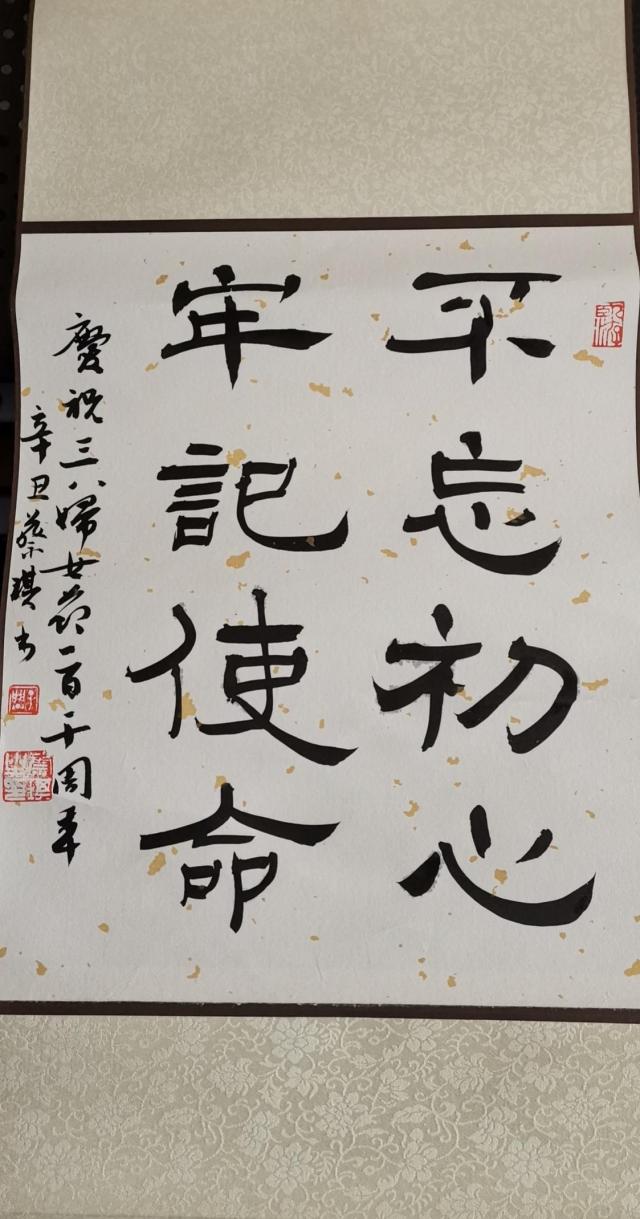 不忘初心
牢記使命
慶祝三八婦女節一百一十周年
辛丑蔡琪書